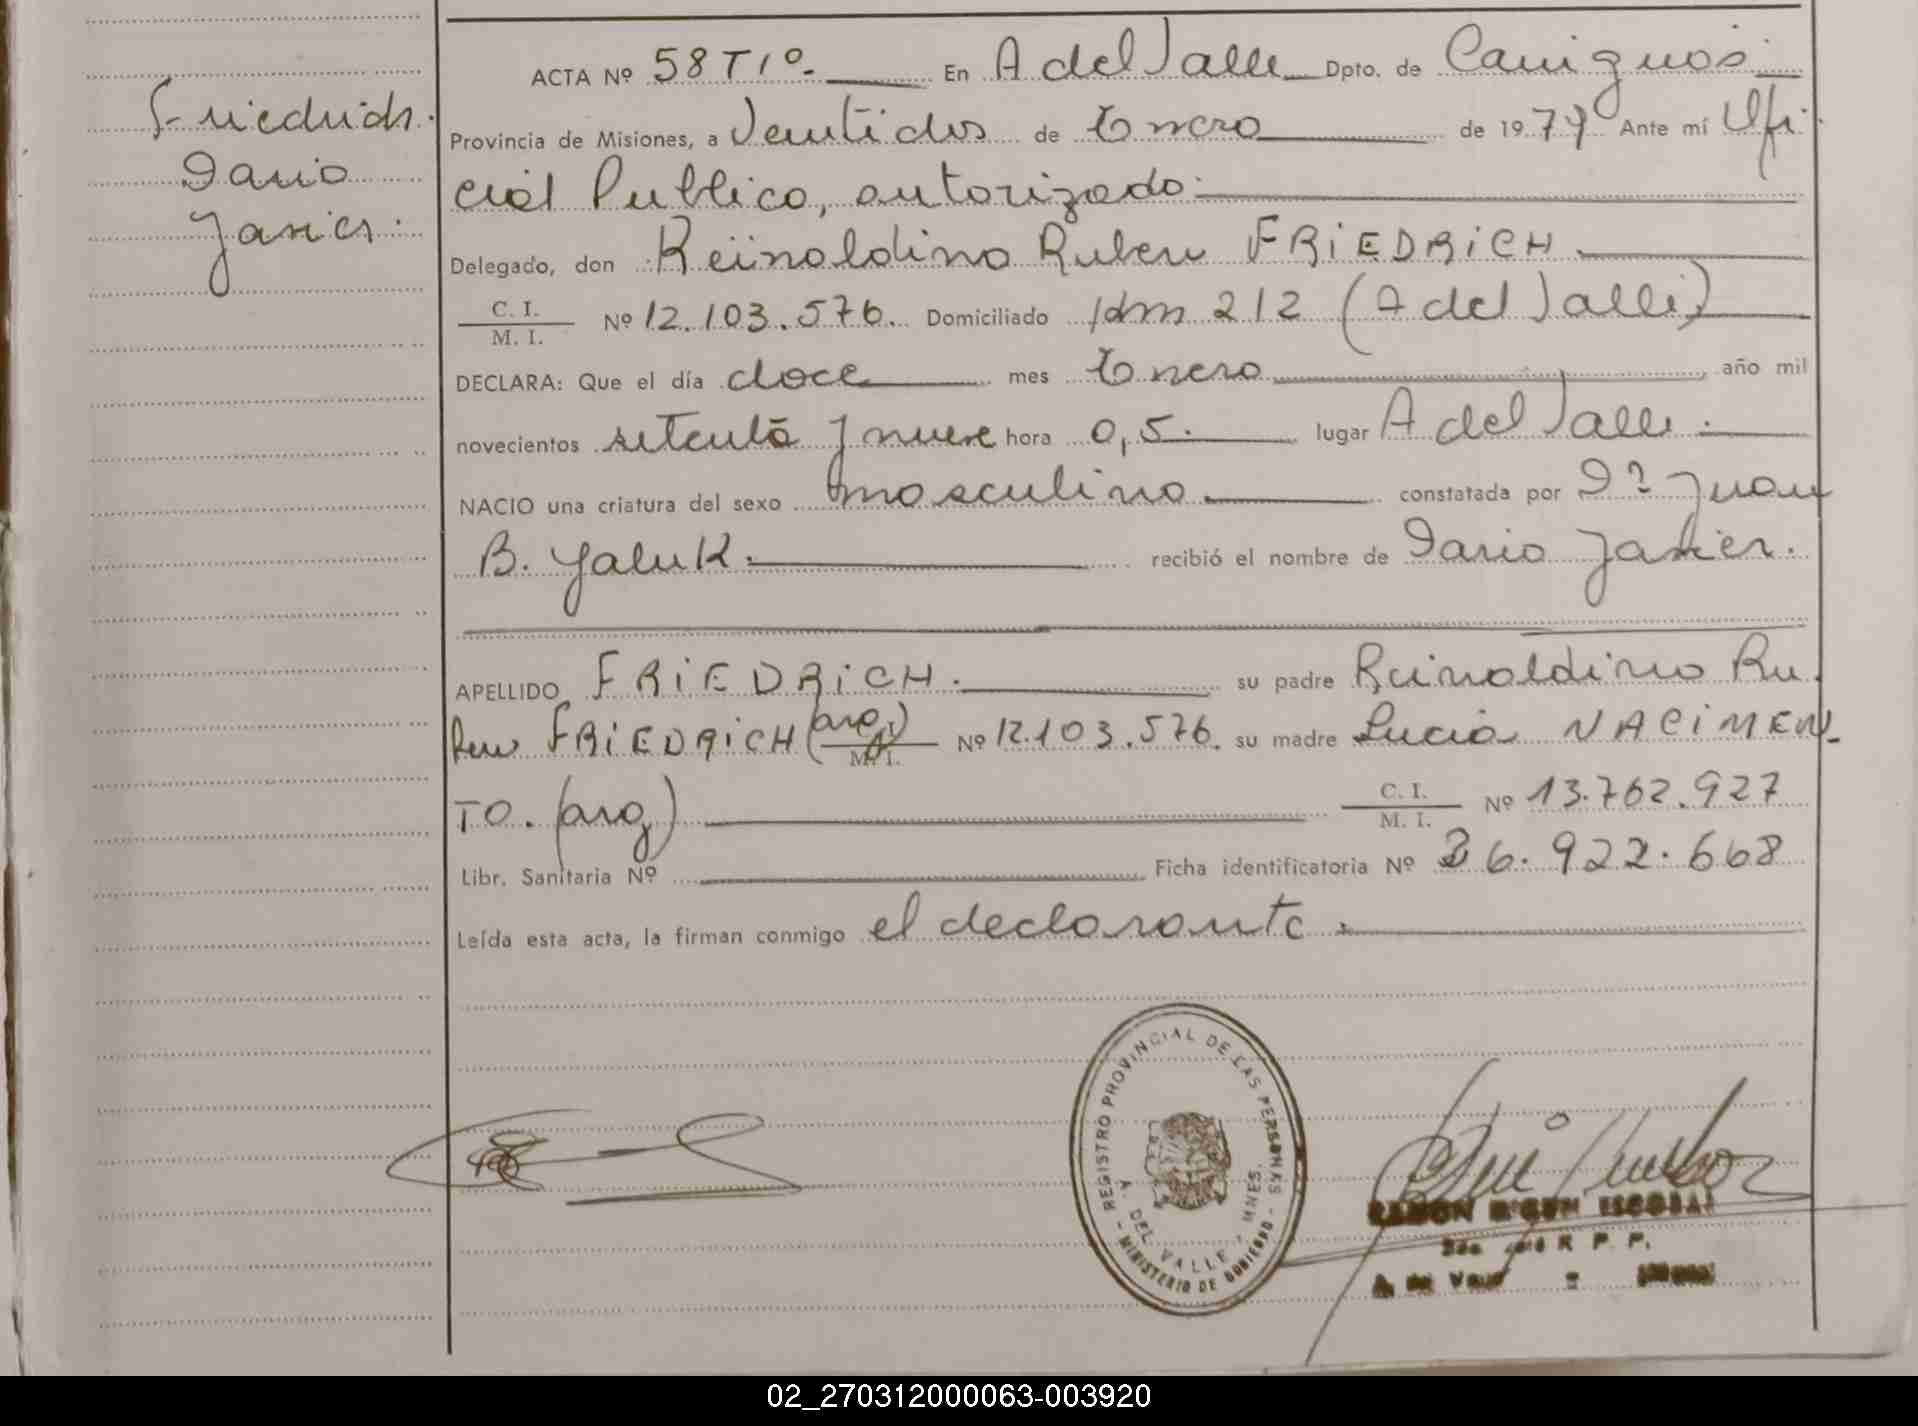 Friedrich.
Dario
Javier.
ACTA Nº 58 T 1º. En A del Valle Dpto. de Cainguás.
Provincia de Misiones, a Veintidos de Enero de 1979 Ante mí Ofi
cial Publico, autorizado.
Delegado, don Reinoldino Ruben FRIEDRICH.
C. I.
M. I.
Nº 12.103.576. Domiciliado km 212 (A del Valle)
DECLARA: Que el día doce mes Enero año mil
novecientos setenta y nueve hora 0,5. lugar A del Valle.
NACIO una criatura del sexo masculino constatada por Dº Juan
B. Yaluk. recibió el nombre de Dario Javier.
APELLIDO FRIEDRICH. su padre Reinoldino Ru
ben FRIEDRICH (arg) M. I. Nº 12.103.576. su madre Lucia NACIMEN
TO. (arg) C. I. M. I. Nº 13.762.927
Libr. Sanitaria Nº Ficha identificatoria Nº 26.922.668
Leída esta acta, la firman conmigo el declarante.
REGISTRO PROVINCIAL DE LAS PERSONAS
A. DEL VALLE - MNES.
- MINISTERIO DE GOBIERNO -
RAMON ESCOBAR
R. P. P.
A. del Valle
02_270312000063-003920